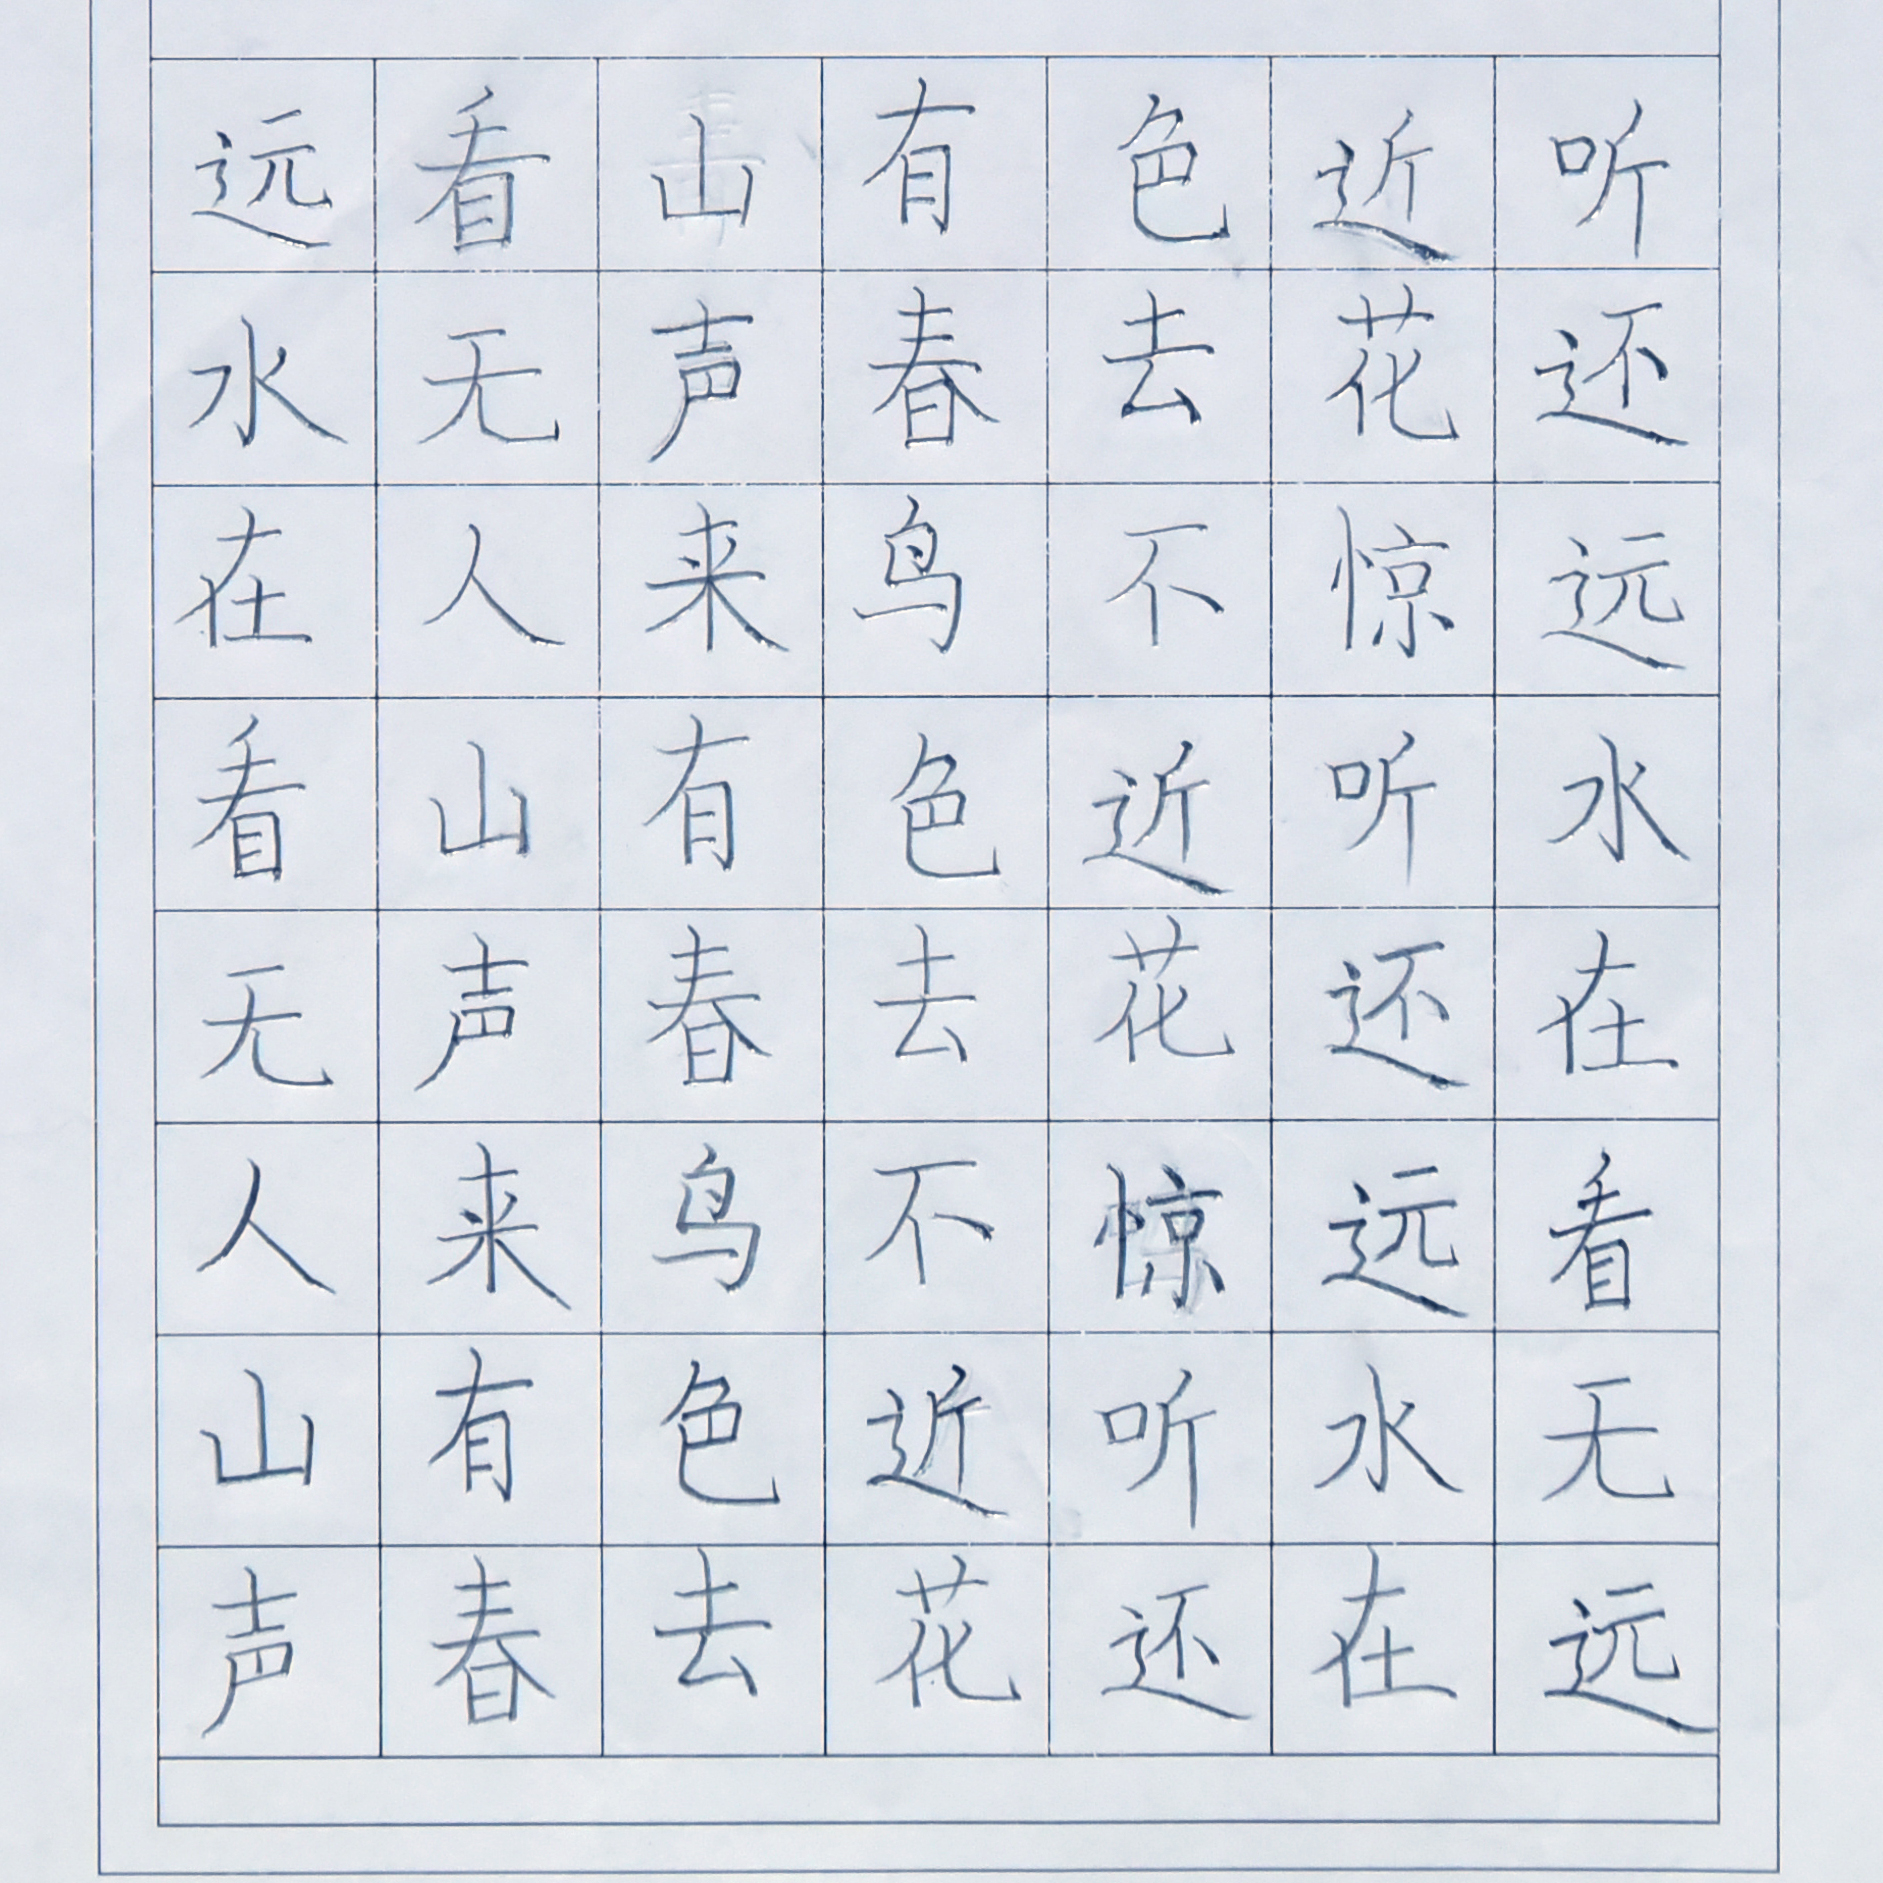 远看山有色近听
水无声春去花还
在人来鸟不惊远
看山有色近听水
无声春去花还在
人来鸟不惊远看
山有色近听水无
声春去花还在远